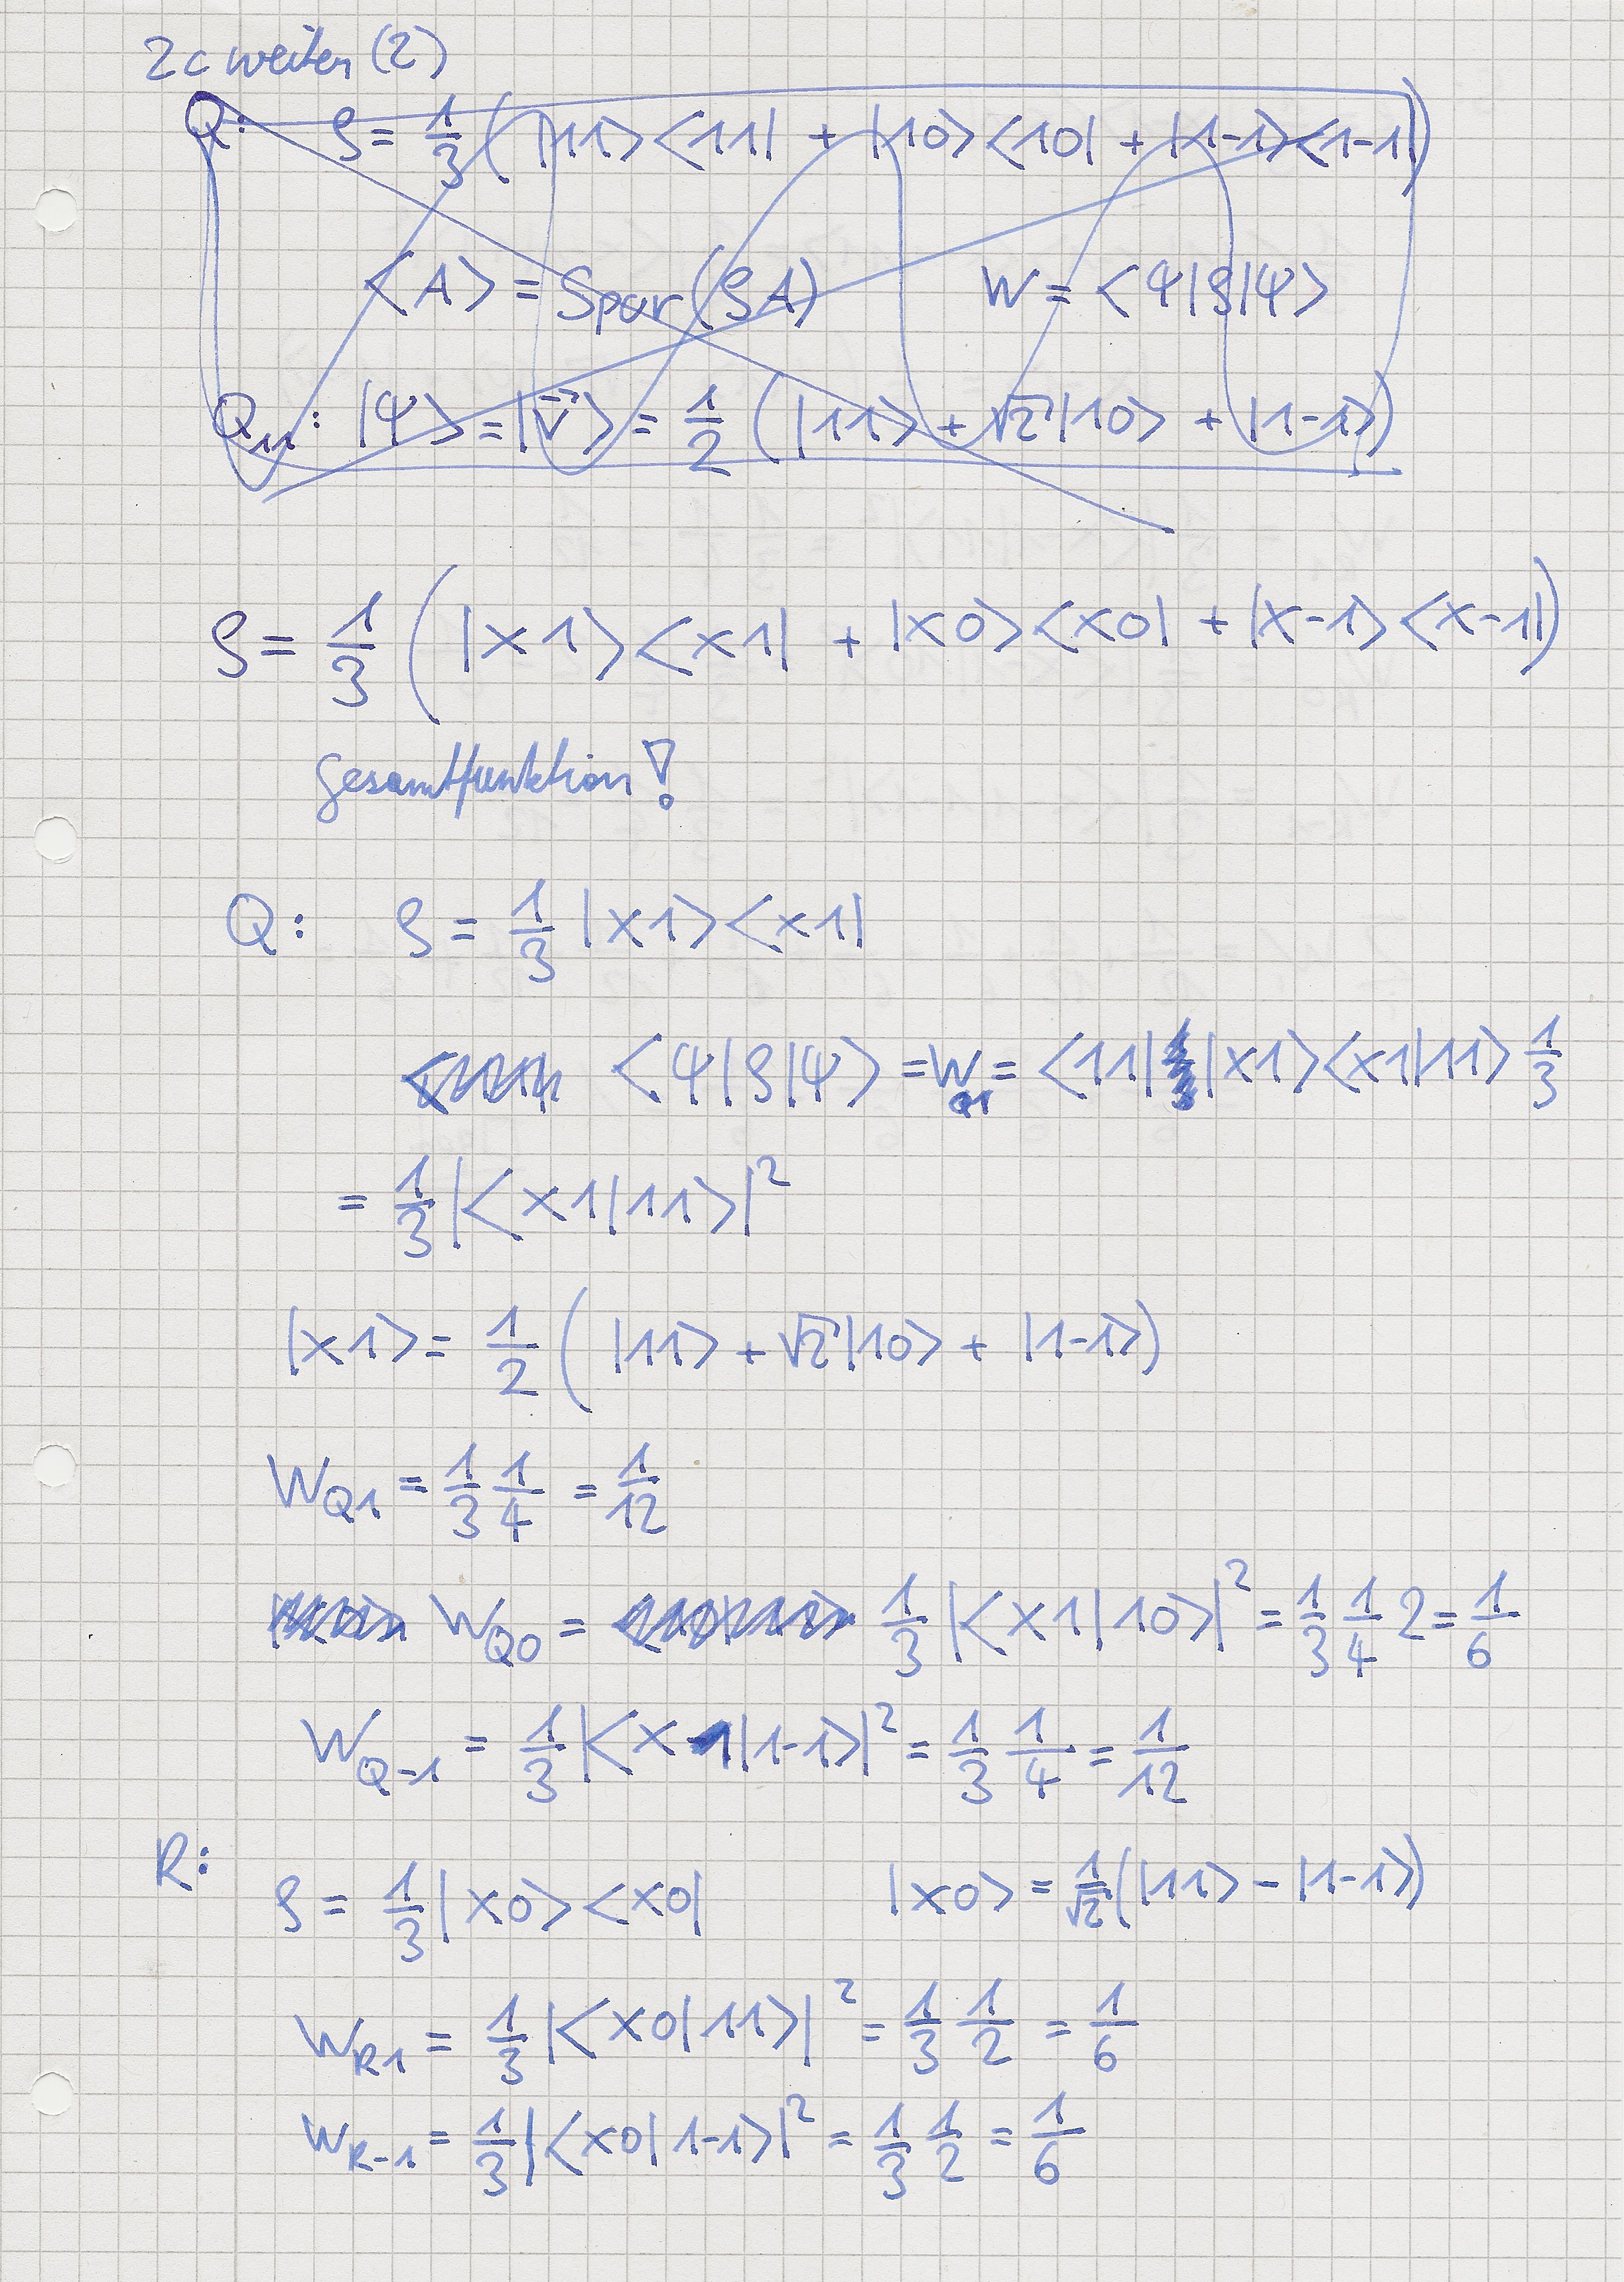 2c weiter (2)
Q: ρ = 1/3 ( |11><11| + |10><10| + |1-1><1-1| )
<A> = Spur(ρA) W = <Ψ|ρ|Ψ>
Q₁₁: |Ψ> = |v⃗> = 1/2 ( |11> + √2 |10> + |1-1> )
ρ = 1/3 ( |x1><x1| + |x0><x0| + |x-1><x-1| )
Gesamtfunktion!
Q: ρ = 1/3 |x1><x1|
<Ψ|ρ|Ψ> = W_Q1 = <11| |x1><x1|11> 1/3
= 1/3 |<x1|11>|²
|x1> = 1/2 ( |11> + √2 |10> + |1-1> )
W_Q1 = 1/3 1/4 = 1/12
W_Q0 = 1/3 |<x1|10>|² = 1/3 1/4 2 = 1/6
W_Q-1 = 1/3 |<x1|1-1>|² = 1/3 1/4 = 1/12
R:
ρ = 1/3 |x0><x0| |x0> = 1/√2 ( |11> - |1-1> )
W_R1 = 1/3 |<x0|11>|² = 1/3 1/2 = 1/6
W_R-1 = 1/3 |<x0|1-1>|² = 1/3 1/2 = 1/6